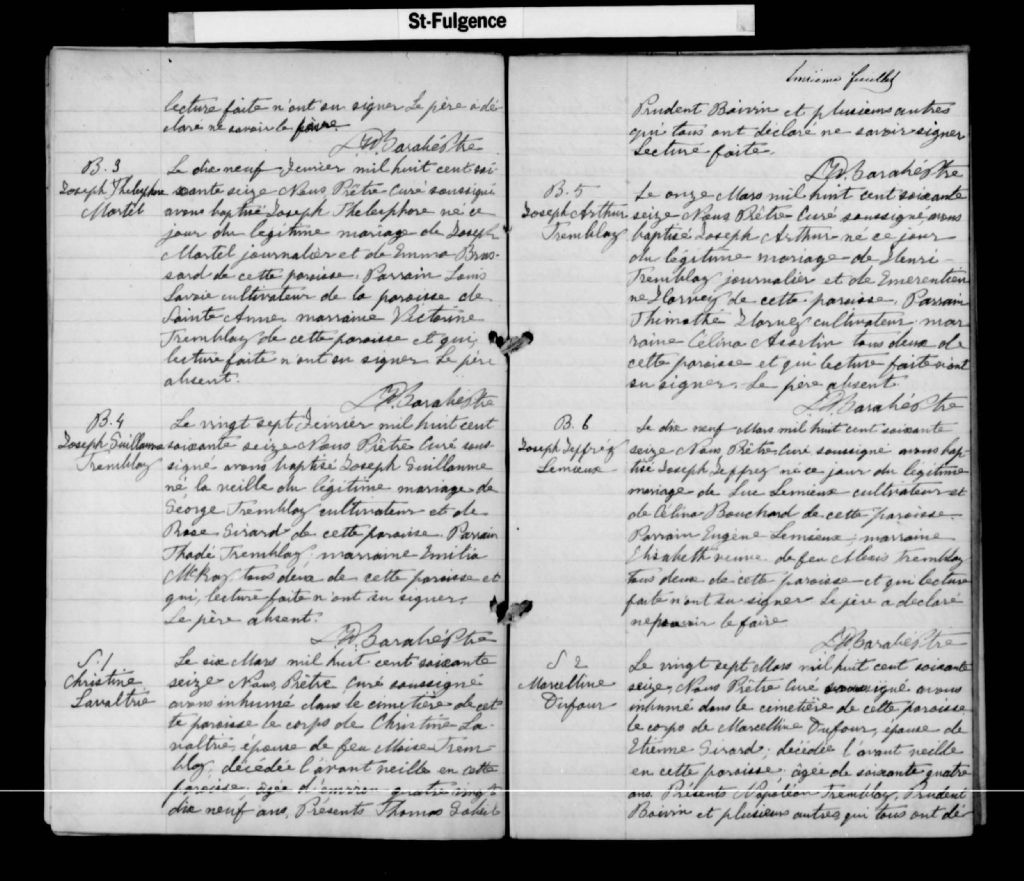 St-Fulgence
lecture faite n'ont su signer Le père a dé-
claré ne savoir le faire.
Ptre
B. 3
Joseph Thelesphore
Martel
Le dix neuf Fevrier mil huit cent soi-
xante seize Nous Prêtre Curé soussigné
avons baptisé Joseph Thelesphore né ce
jour du légitime mariage de Joseph
Martel journalier et de Emma Bras-
sard de cette paroisse. Parrain Louis
Savoie cultivateur de la paroisse de
Sainte Anne, marraine Victorine
Tremblay de cette paroisse et qui,
lecture faite n'ont su signer Le père
absent.
Ptre
B. 4
Joseph Guillaume
Tremblay
Le vingt sept Fevrier mil huit cent
soixante seize Nous Prêtre Curé sous-
signé avons baptisé Joseph Guillaume
né la veille du légitime mariage de
George Tremblay cultivateur et de
Rose Girard de cette paroisse. Parrain
Thadé Tremblay; marraine Emilia
McKay tous deux de cette paroisse et
qui, lecture faite n'ont su signer.
Le père absent.
Ptre
S. 1
Christine
Lavaltrie
Le six Mars mil huit cent soixante
seize Nous, Prêtre Curé soussigné
avons inhumé dans le cimetière de cet-
te paroisse le corps de Christine La-
valtrie, épouse de feu Moise Trem-
blay, décédée l'avant veille en cette
paroisse âgée d'environ quatre vingt
dix neuf ans, Présents Thomas
feuillet
Prudent Boivin et plusieurs autres
qui tous ont déclaré ne savoir signer
Lecture faite.
Ptre
B. 5
Joseph Arthur
Tremblay
Le onze Mars mil huit cent soixante
seize Nous Prêtre Curé soussigné avons
baptisé Joseph Arthur né ce jour
du légitime mariage de Henri
Tremblay journalier et de Emerentien-
ne Harvey de cette paroisse. Parrain
Thimothé Harvey cultivateur, mar-
raine Célina Asselin tous deux de
cette paroisse et qui lecture faite n'ont
su signer. Le père absent.
Ptre
B. 6
Joseph Jeffrey
Lemieux
Le dix neuf Mars mil huit cent soixante
seize Nous Prêtre Curé soussigné avons bap-
tisé Joseph Jeffrey né ce jour du légitime
mariage de Luc Lemieux cultivateur et
de Célina Bouchard de cette paroisse.
Parrain Eugène Lemieux; marraine
Elisabeth veuve de feu Alexis Tremblay
tous deux de cette paroisse et qui lecture
faite n'ont su signer Le père a declaré
ne pouvoir le faire
Ptre
S 2
Marcelline
Dufour
Le vingt sept Mars mil huit cent soixante
seize, Nous Prêtre Curé soussigné avons
inhumé dans le cimetière de cette paroisse
le corps de Marcelline Dufour, épouse de
Etienne Girard, décédée l'avant veille
en cette paroisse âgée de soixante quatre
ans. Présents Napoléon Tremblay, Prudent
Boivin et plusieurs autres qui tous ont dé